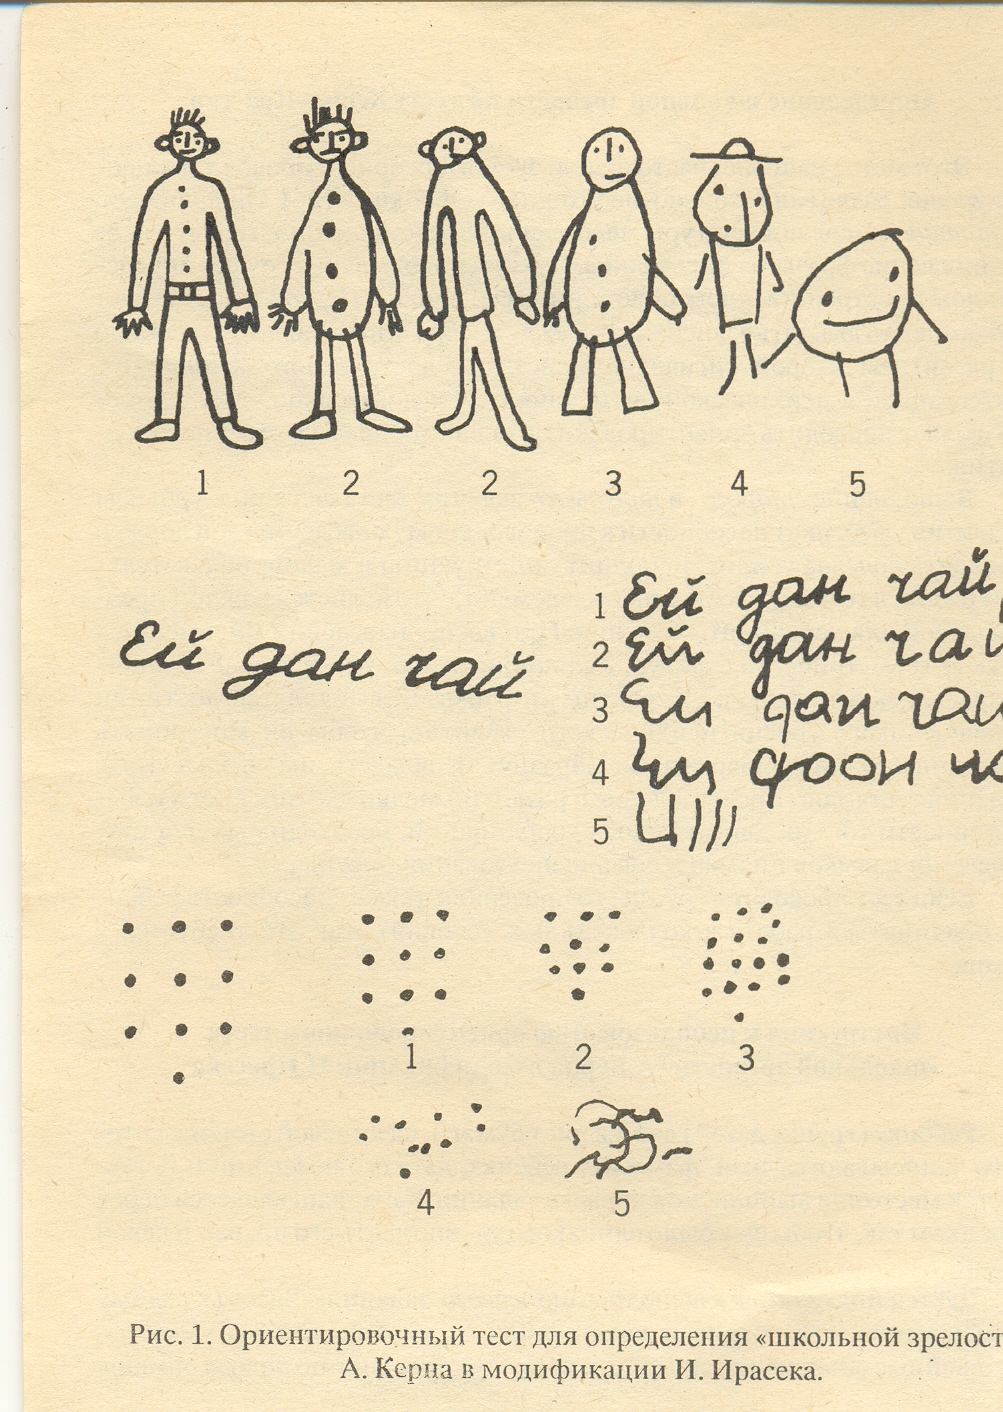 1 2 2 3 4 5
Ей дан чай
1 Ей дан чай
2 Ей дан чай
3 Еи дан чаи
4 Еи фоон ча
5 Ц)))
1 2 3
4 5
Рис. 1. Ориентировочный тест для определения «школьной зрелост
А. Керна в модификации И. Ирасека.